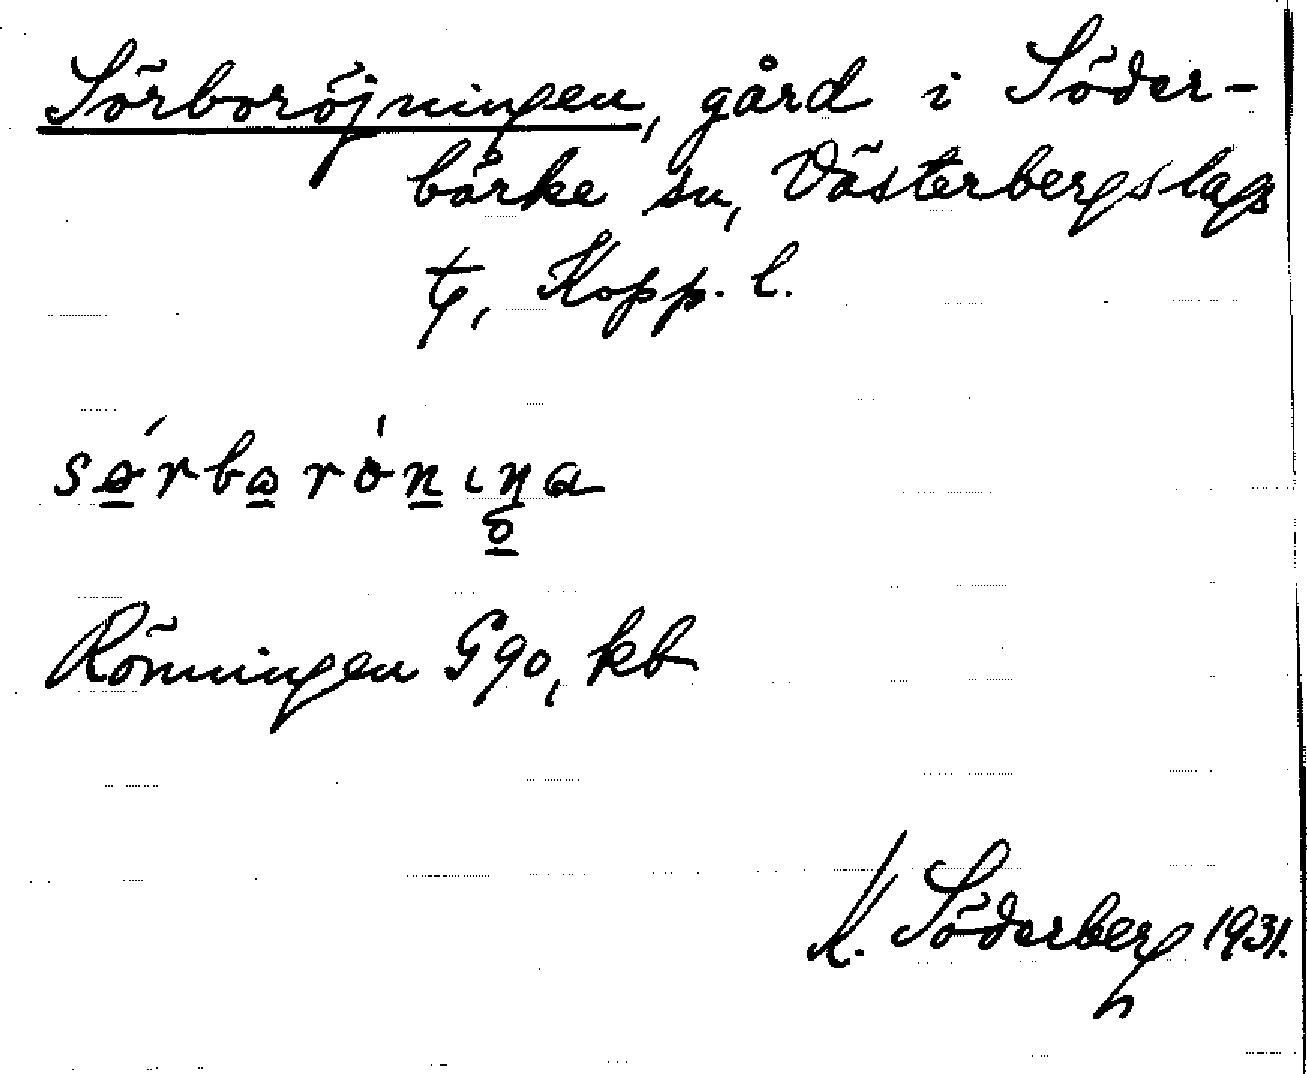 Sörboröjningen, gård i Söder-
bärke sn, Västerbergslags
tg, Kopp. l.
Rönningen G90, kb
K. Söderberg 1931.